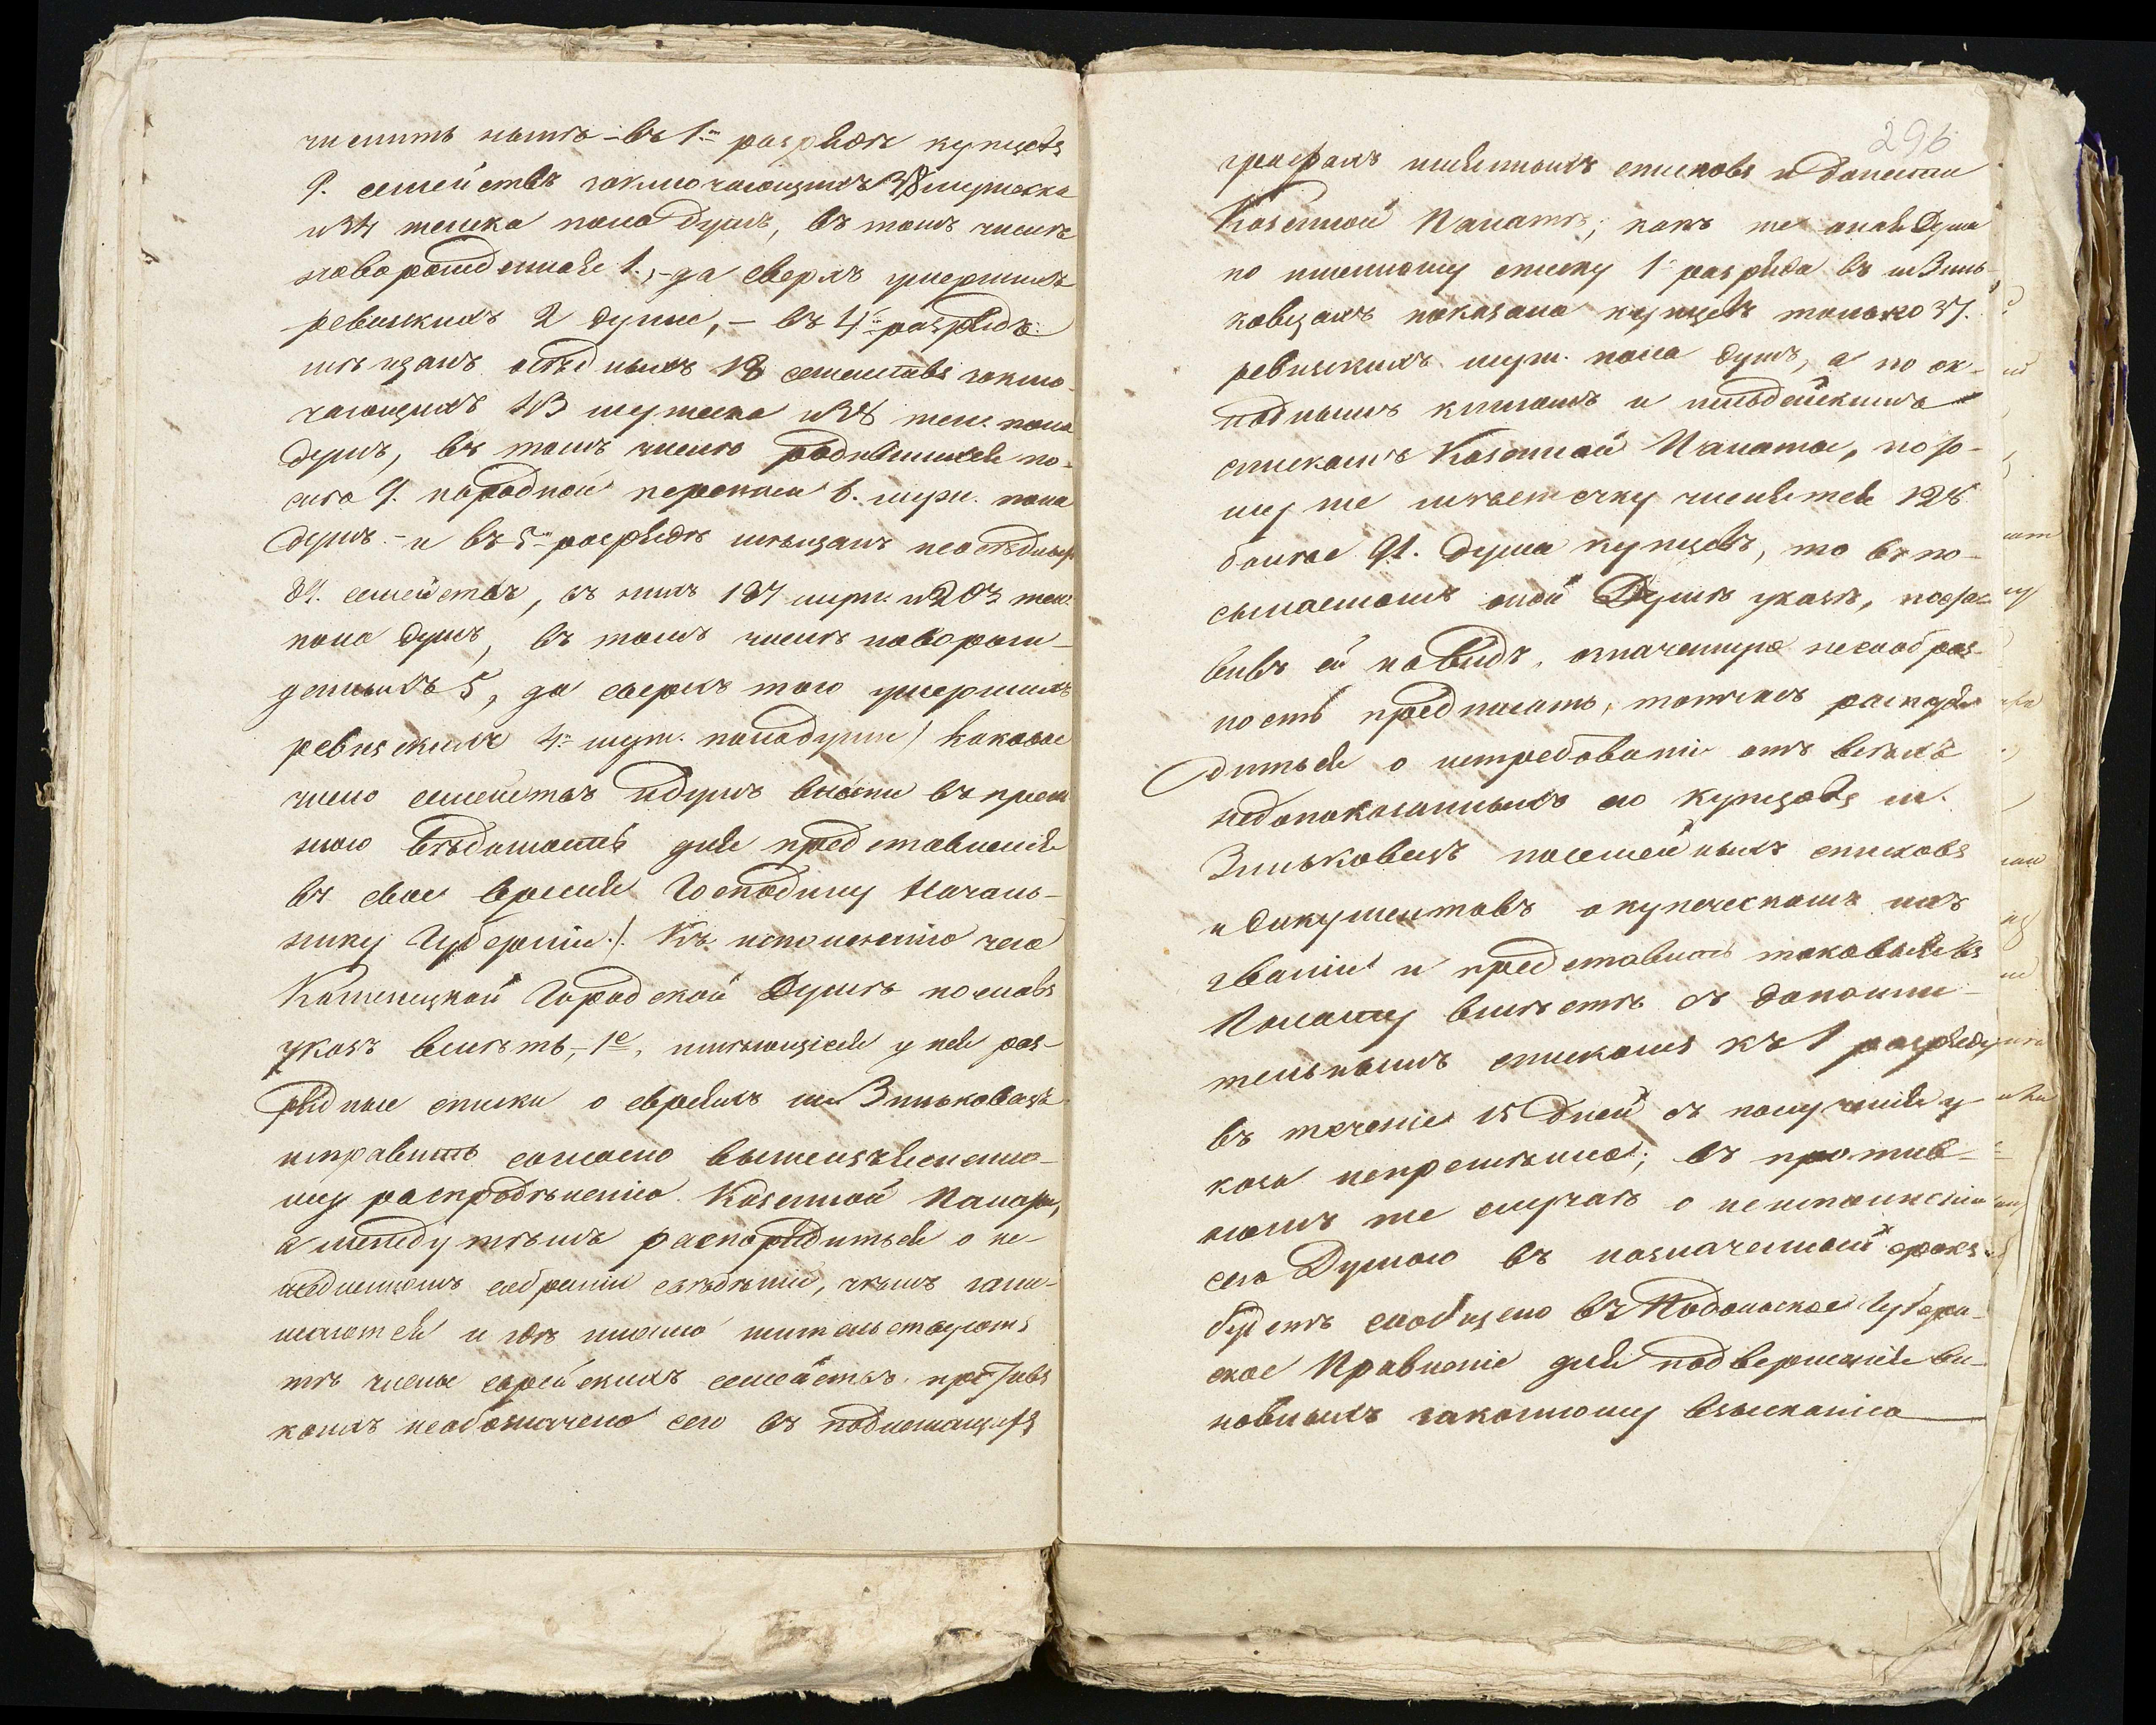 числить нынѣ – въ 1м разрядѣ купцовъ
9. семействъ заключающихъ 38 мужеска
и 34 женска пола душъ, въ томъ числѣ
новорожденная 1., – да сверхъ умершихъ
ревизскихъ 2 души, – въ 4м разрядѣ
мѣщанъ осѣдлыхъ 18 семействъ заклю-
чающихъ 43 мужеска и 38 жен. пола
душъ, въ томъ числѣ родившихся по-
слѣ 9. народной переписи 6. муж. пола
душъ. – и въ 5м разрядѣ мѣщанъ неосѣдлыхъ
81. семействъ, въ нихъ 197 муж. и 203 жен.
пола душъ, въ томъ числѣ поворож-
денныхъ 5, да сверхъ того умершихъ
ревизскихъ 4. муж. пола души / каковое
число семействъ и душъ внести въ
ною вѣдомость для представленія
въ свое время Господину Началь-
нику Губерніи./. Къ исполненію чего
Каменецкой Городской Думѣ пославъ
указъ велѣть, – 1е, имѣющіеся у нея раз-
рядные списки о евреяхъ м. Зиньковахъ
исправить согласно вышеизъясненно-
му распредѣленію Казенной Палаты,
а между тѣмъ распорядиться о не-
медленномъ собраніи свѣдѣній, чѣмъ зани-
маются и гдѣ именно жительствуютъ
тѣ члены еврейскихъ семействъ, противъ
коихъ необозначено сего въ подлежащихъ
296
графахъ имянныхъ списковъ и донести
Казенной Палатѣ; какъ же оная Дума
по именному списку 1 разряда въ м. Зинь-
ковцахъ показала купцовъ только 37.
ревизскихъ муж. пола душъ, а по ок-
ладнымъ книгамъ и
спискамъ Казенной Палаты, по se-
му же мѣстечку числится 128
болѣе 91. душа купцовъ, то въ по-
сылаемомъ оной Думѣ указѣ, поста-
вивъ ей навидъ, означенную несообраз-
ность предписать, тотчасъ распоря-
диться о истребованіи отъ всѣхъ
недопоказанныхъ ею купцовъ м.
Зиньковецъ посемейныхъ списковъ
и документовъ о купеческомъ ихъ
званіи и представить таковые въ
Палату вмѣстѣ съ дополни-
тельнымъ спискомъ къ 1 разряду
въ теченіе 15 дней съ полученія у-
каза непремѣнно; въ против-
номъ же случаѣ о неисполненіи
сего Думою въ назначенный срокъ
будетъ сообщено въ Подольское Губерн-
ское Правленіе для подверженія ви-
новныхъ законному взысканію